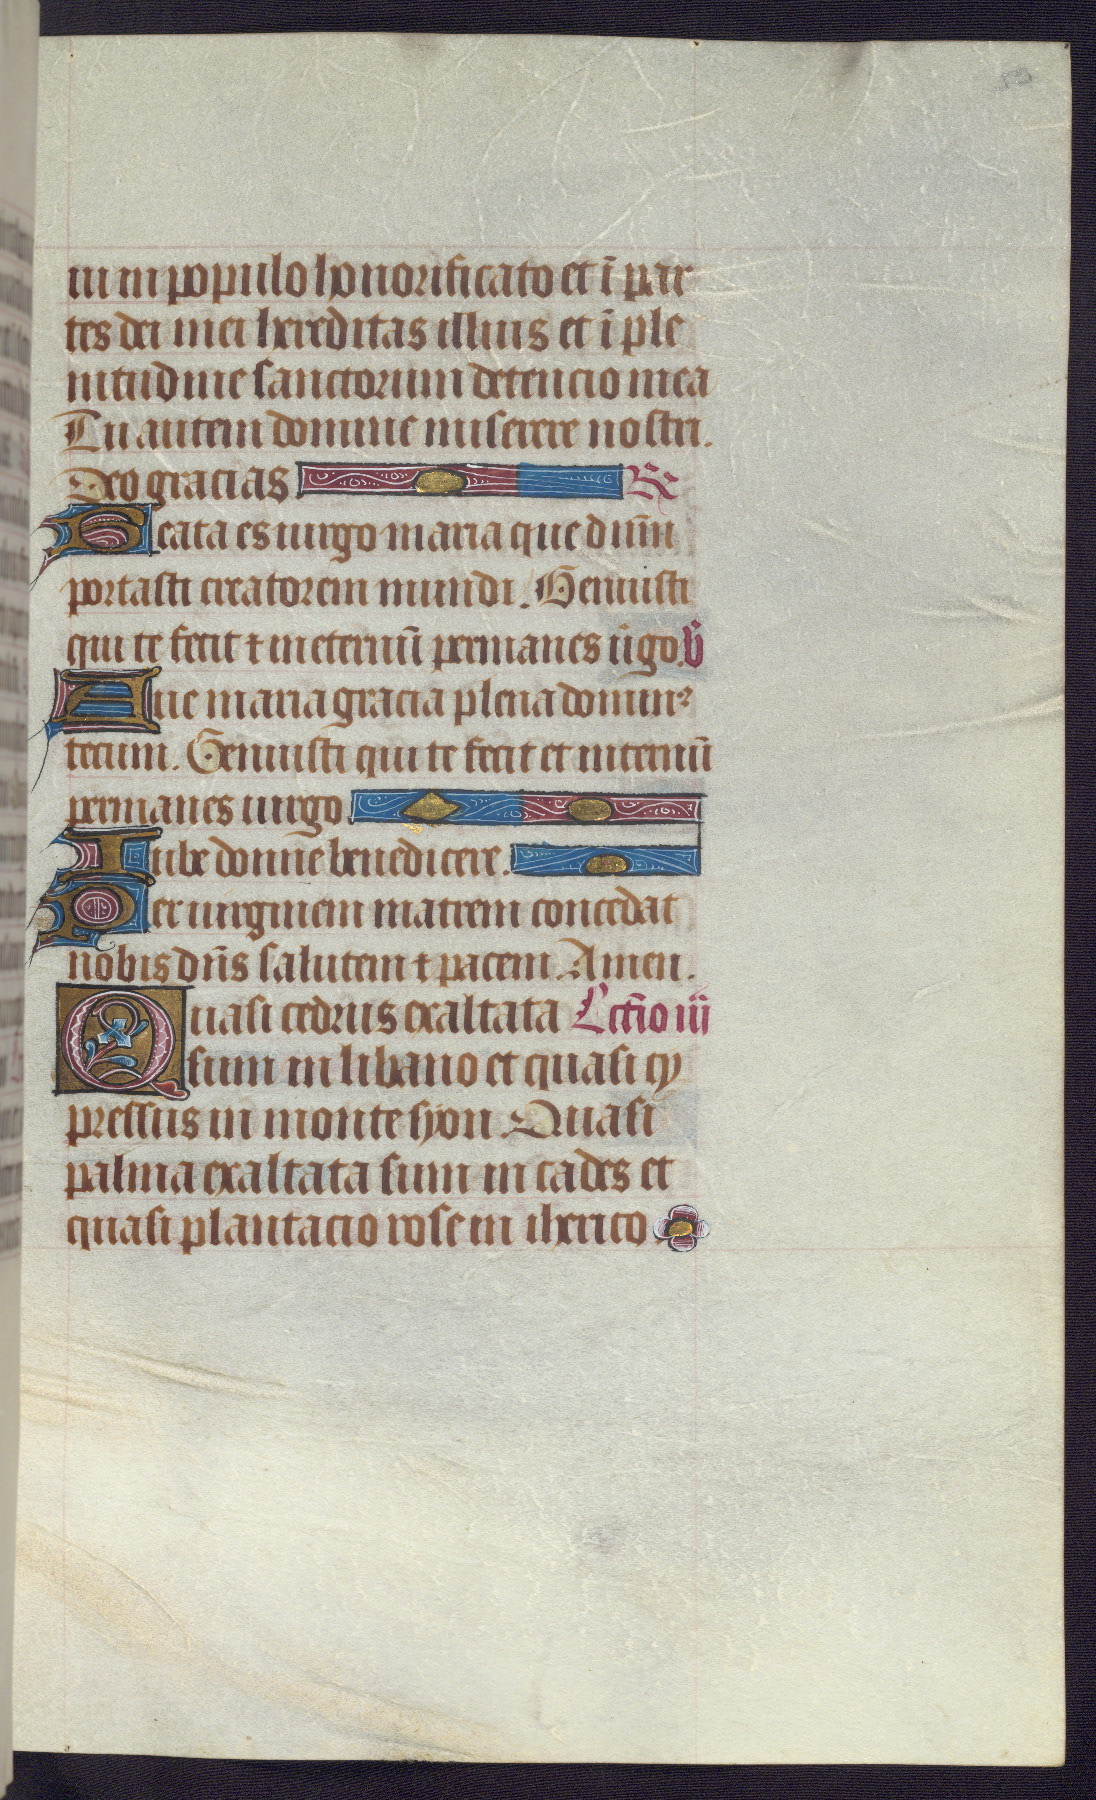 ui in populo honorificato et ī par
tes dei mei hereditas illius et ī ple
nitudine sanctorum detencio mea
Tu autem domine miserere nostri.
Deo gracias. ℟
Beata es uirgo maria que dn̄m
portasti creatorem mundi. Genuisti
qui te fecit ⁊ in eternū permanes ūgo. ℣
Aue maria gracia plena dominꝰ
tecum. Genuisti qui te fecit et ineternū
permanes uirgo
Iube domne benedicere.
Per uirginem matrem concedat
nobis dn̄s salutem ⁊ pacem. Amen.
Quasi cedrus exaltata Lectīo iii
sum in libano et quasi cy
pressus in monte syon. Quasi
palma exaltata sum in cades et
quasi plantacio rose in iherico.